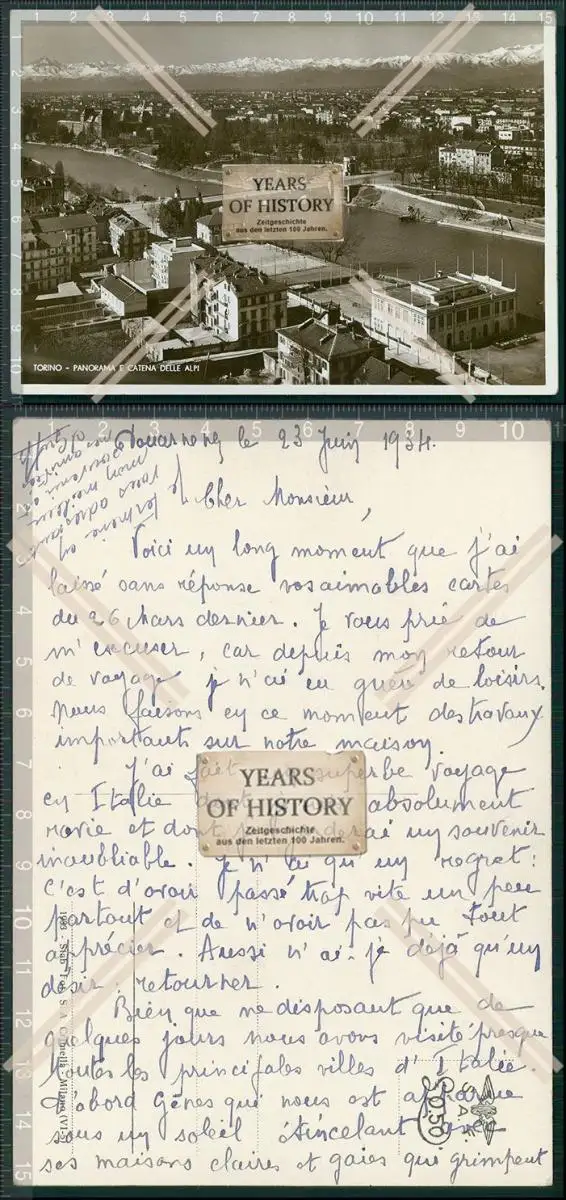 YEARS
OF HISTORY
Zeitgeschichte
aus den letzten 100 Jahren.
TORINO - PANORAMA E CATENA DELLE ALPI
Douarnenez le 23 Juin 1934.
Cher Monsieur,
Voici un long moment que j'ai
laissé sans réponse vos aimables cartes
du 26 Mars dernier. Je vous prie de
m'excuser, car depuis mon retour
de voyage je n'ai eu guère de loisirs.
Nous faisons en ce moment des travaux
importants sur notre maison.
J'ai fait superbe voyage
en Italie absolument
ravie et dont un souvenir
inoubliable. Je n'ai qu'un regret:
C'est d'avoir passé trop vite un peu
partout et de n'avoir pas pu tout
apprécier. Aussi n'ai-je déjà qu'un
désir: retourner.
Bien que ne disposant que de
quelques jours nous avons visité presque
toutes les principales villes d'Italie.
D'abord Gênes qui nous est apparue
sous un soleil étincelant avec
ses maisons claires et gaies qui grimpent
YEARS
OF HISTORY
Zeitgeschichte
aus den letzten 100 Jahren.
S.A.F.
50.50